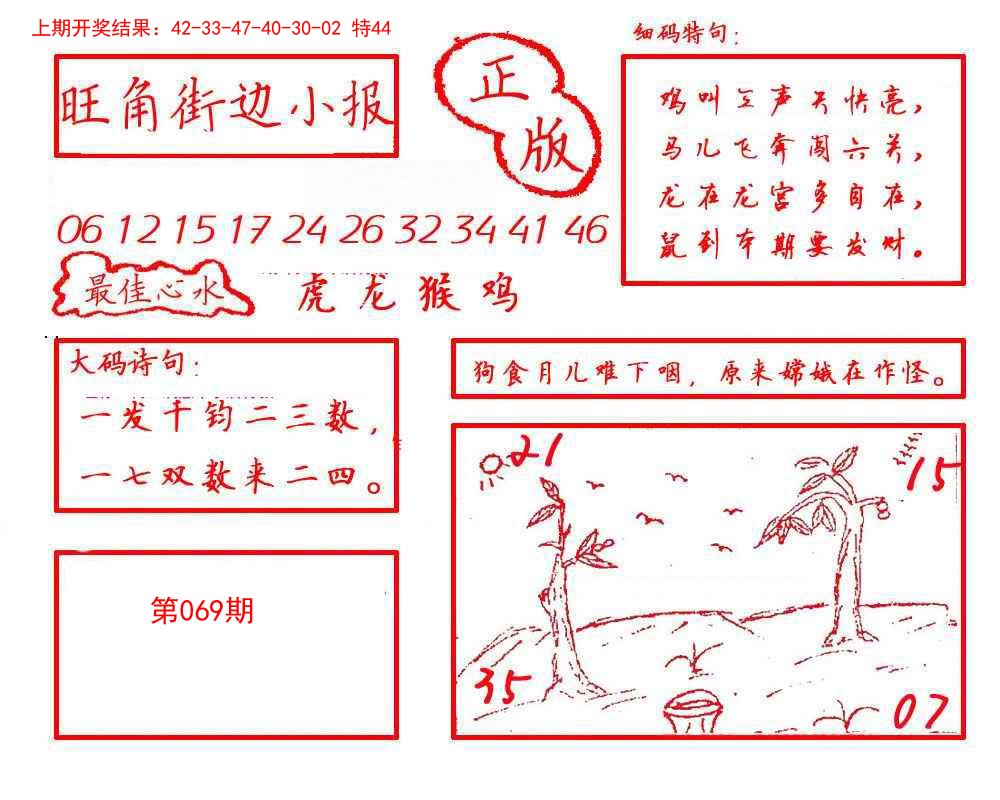 上期开奖结果：42-33-47-40-30-02 特44
旺角街边小报
正版
细码特句：
鸡叫三声天快亮，
马儿飞奔闯六关，
龙在龙宫多自在，
鼠到本期要发财。
06 12 15 17 24 26 32 34 41 46
最佳心水
虎龙猴鸡
大码诗句：
一发千钧二三数，
一七双数来二四。
狗食月儿难下咽，原来嫦娥在作怪。
21
15
35
07
第069期